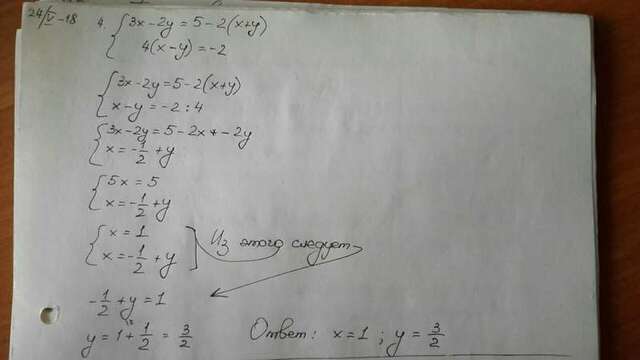 24/IV-18 4. { 3x-2y = 5-2(x+y)
4(x-y) = -2
{ 3x-2y = 5-2(x+y)
x-y = -2 : 4
{ 3x-2y = 5-2x+-2y
x = -1/2 + y
{ 5x = 5
x = -1/2 + y
{ x = 1
x = -1/2 + y ] Из этого следует
-1/2 + y = 1
y = 1 + 1/2 = 3/2 Ответ: x=1 ; y = 3/2